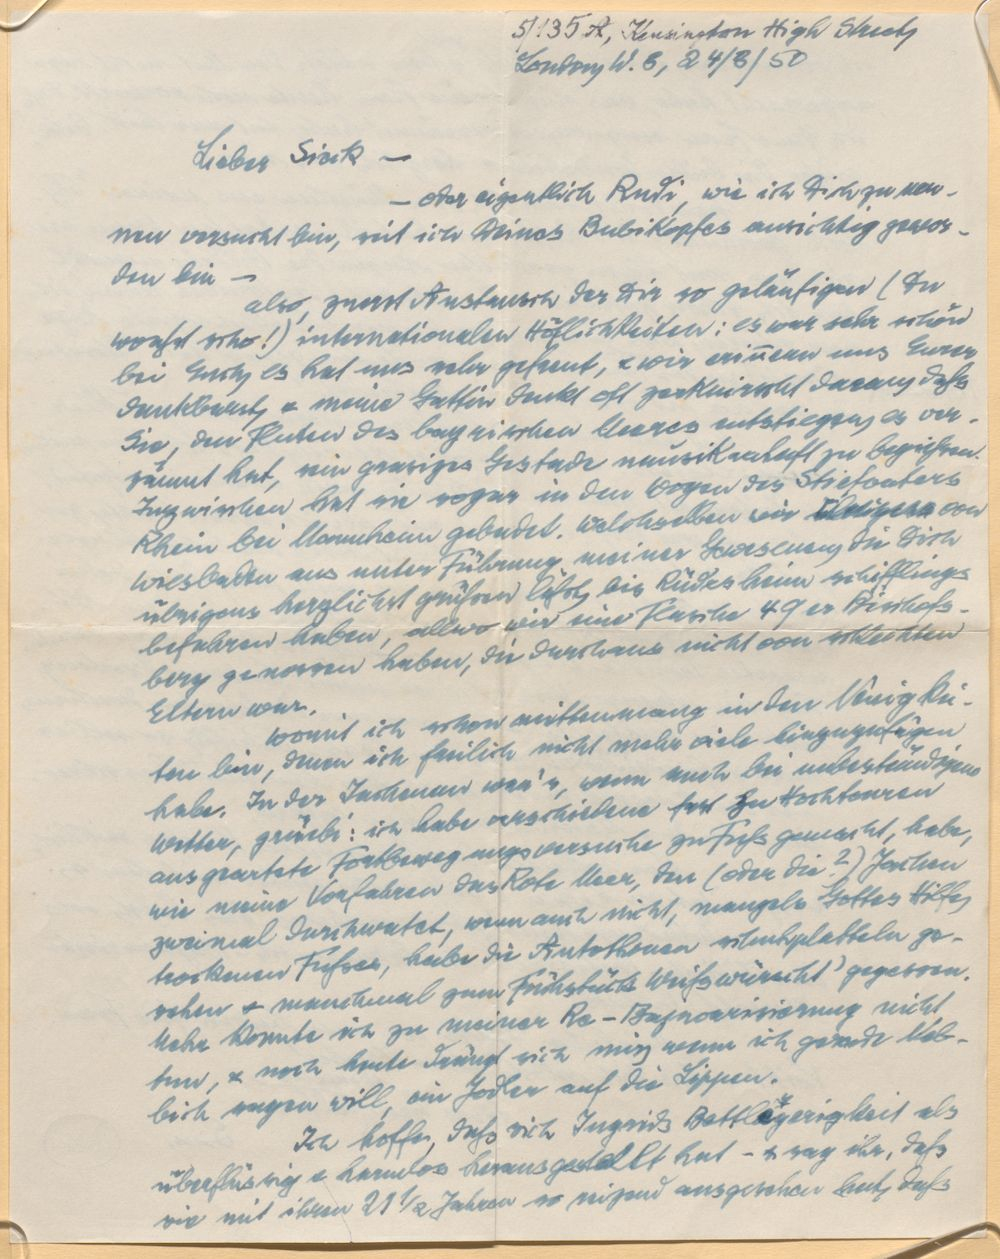 5/135 A, Kensington High Street,
London W. 8, 24/8/50
Lieber Sieck —
— oder eigentlich Rudi, wie ich Dich zu nen-
nen versucht bin, seit ich Deines Bubikopfes ansichtig gewor-
den bin —
also, zuerst Austausch der Dir so geläufigen (Du
woast scho!) internationalen Höflichkeiten: es war sehr schön
bei Euch, es hat uns sehr gefreut, & wir erinnern uns Eurer
dankbarst, & meine Gattin denkt oft zerknirscht daran, dass
Sie, den Fluten des bayrischen Meeres entstiegen, es ver-
säumt hat, ein grasiges Gestade nausikaahaft zu begiessen.
Inzwischen hat sie sogar in den Wogen des Stiefvaters
Rhein bei Mannheim gebadet. Welchselben wir von
Wiesbaden aus unter Führung meiner die Dich
übrigens herzlichst grüssen lässt, bis Rüdesheim schifflings
befahren haben, allwo wir eine Flasche 49er Bischofs-
berg genossen haben, die durchaus nicht von schlechten
Eltern war.
Womit ich schon mittenmang in den Neuigkei-
ten bin, denen ich freilich nicht mehr viele hinzuzufügen
habe. In der Jachenau war's, wenn auch bei unbeständigem
Wetter, grüabi: ich habe verschiedene fast zu Hochtouren
ausgeartete Fortbewegungsversuche zu Fuss gemacht, habe,
wie meine Vorfahren das Rote Meer, den (oder die?) Jachen
zweimal durchwatet, wenn auch nicht, mangels Gottes Hilfe,
trockenen Fusses, habe die Autothonen schuhplatteln ge-
sehen & manchmal zum Frühstück Weisswürscht' gegessen.
Mehr konnte ich zu meiner Re-Bajuvarisierung nicht
tun, & noch heute drängt sich mir, wenn ich gerade Neb-
bich sagen will, ein Jodler auf die Lippen.
Ich hoffe, dass sich Ingrids Bettlägerigkeit als
überflüssig & harmlos herausgestellt hat — & sag ihr, dass
sie mit ihren 21 1/2 Jahren so reizend ausgesehen hat, dass